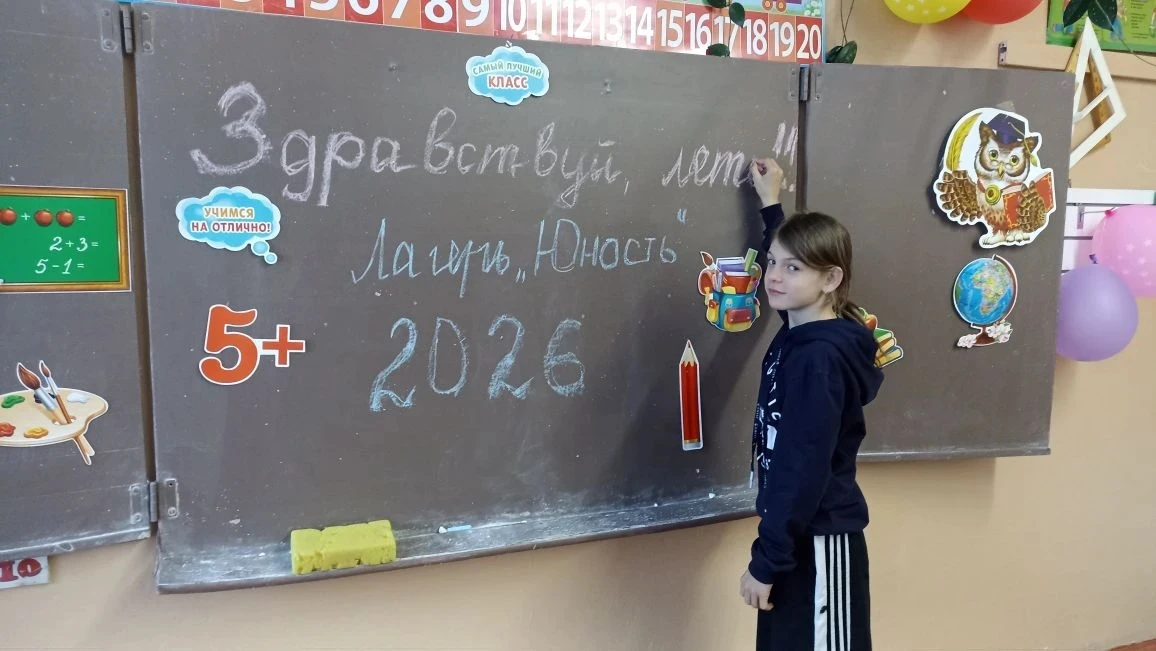 6 7 8 9 10 11 12 13 14 15 16 17 18 19 20
САМЫЙ ЛУЧШИЙ
КЛАСС
Здравствуй, лето!!!
УЧИМСЯ
НА ОТЛИЧНО!
Лагерь „Юность“
2026
+ =
2+3=
5-1=
5+